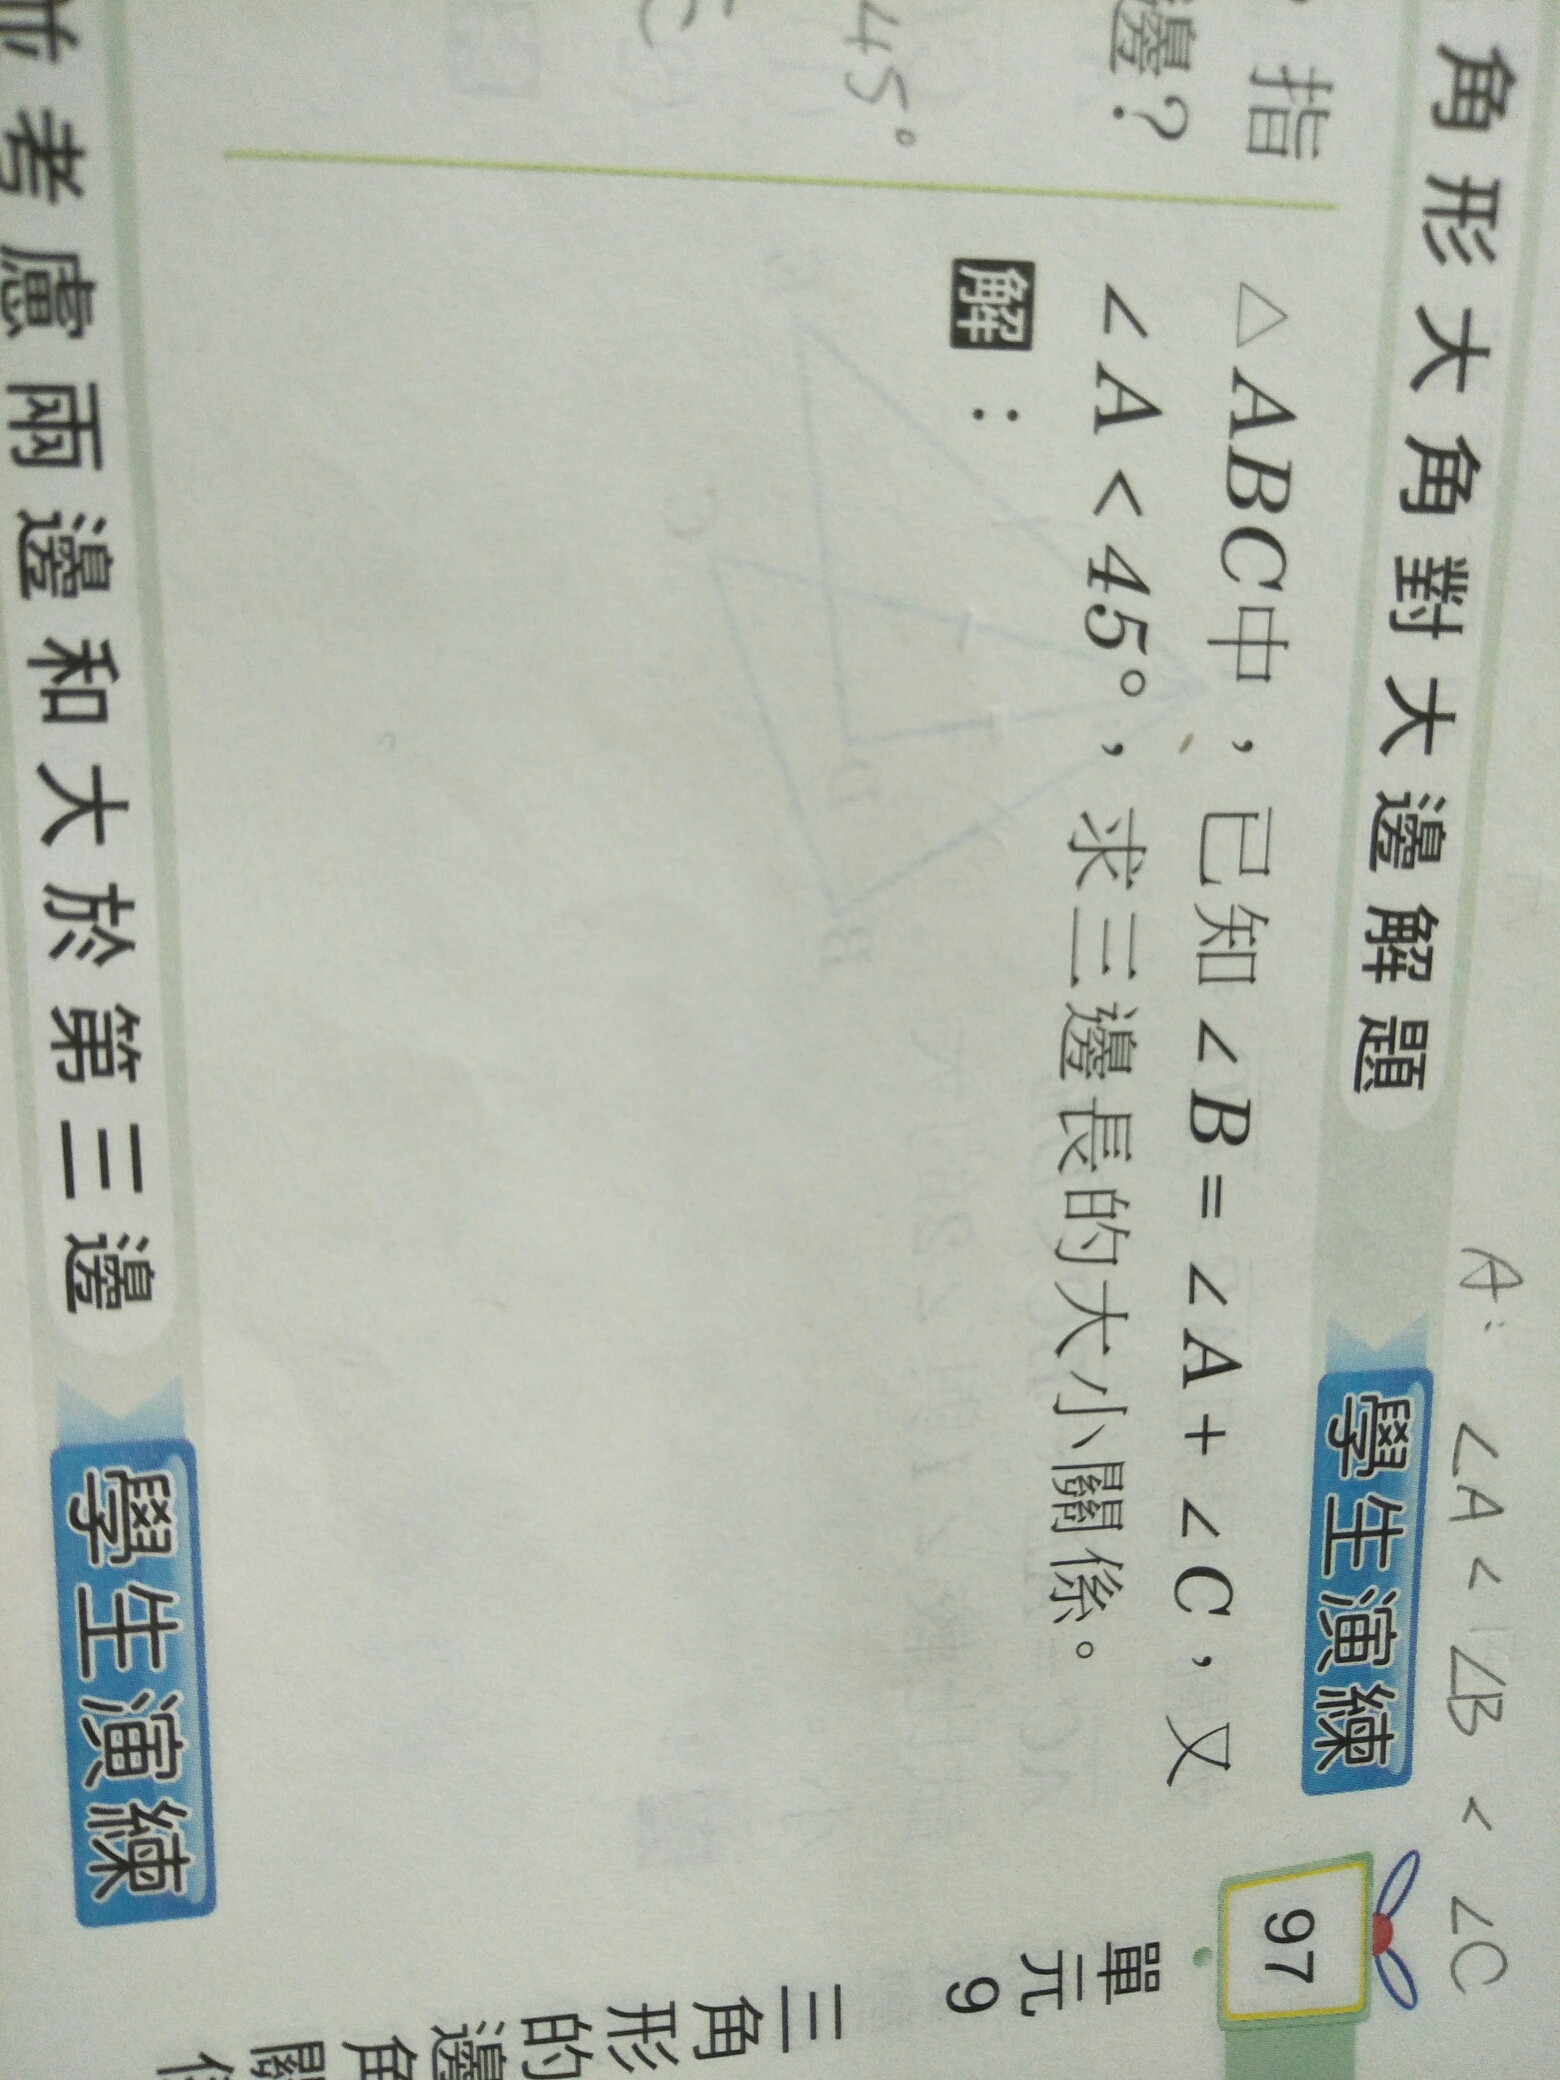 A: ∠A < ∠B < ∠C
角形大角對大邊解題
學生演練
97
指
邊?
45°
C
△ABC中,已知∠B=∠A+∠C,又
∠A<45°,求三邊長的大小關係。
解:
單元9
三角形的邊角關係
考慮兩邊和大於第三邊
學生演練